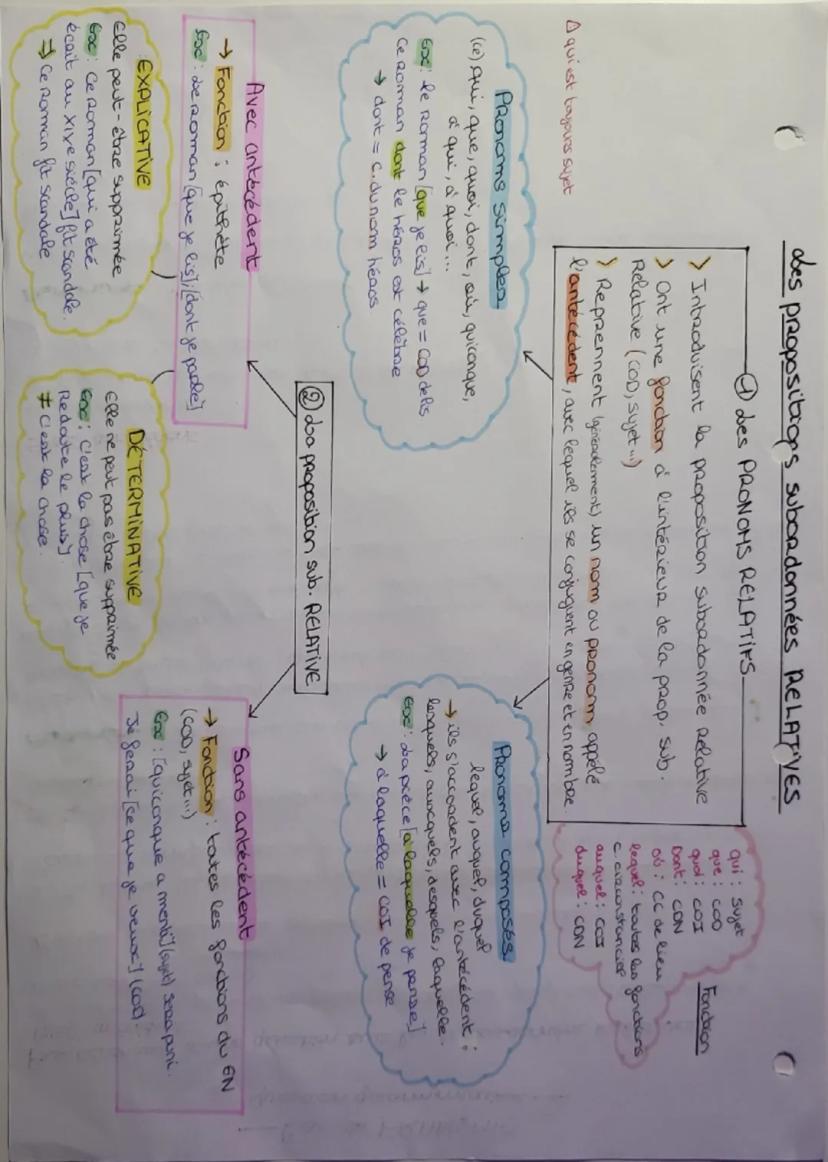 Les propositions subordonnées RELATIVES
① Les PRONOMS RELATIFS
> Introduisent la proposition subordonnée relative
> Ont une fonction à l'intérieur de la prop. sub.
Relative (COD, sujet...)
> Reprennent (généralement) un nom ou pronom appelé
l'antécédent, avec lequel ils se conjuguent en genre et en nombre.
Fonction
qui : sujet
que : COD
quoi : COI
Dont : CDN
où : CC de lieu
lequel : toutes les fonctions
c. circonstanciel
auquel : COI
duquel : CDN
∆ qui est toujours sujet
Pronoms simples
(ce) qui, que, quoi, dont, où, quiconque,
à qui, à quoi...
Ex : le roman [que je lis] → que = COD de lis
Ce roman dont le héros est célèbre
→ dont = C. du nom héros
Pronoms composés
lequel, auquel, duquel
→ ils s'accordent avec l'antécédent :
lesquels, auxquels, desquels, laquelle.
Ex : La pièce [à laquelle je pense]
→ à laquelle = COI de pense
② La proposition sub. RELATIVE
Avec antécédent
→ Fonction : épithète
Ex : Le roman [que je lis] / [dont je parle]
Sans antécédent
→ Fonction : toutes les fonctions du GN
(COD, sujet...)
Ex : [quiconque a menti] (sujet) sera puni.
Je ferai [ce que je veux] (COD).
EXPLICATIVE
Elle peut-être supprimée
Ex : Ce roman [qui a été
écrit au XIXe siècle] fit scandale.
→ Ce roman fit scandale
DÉTERMINATIVE
Elle ne peut pas être supprimée
Ex : C'est la chose [que je
Redoute le plus].
≠ C'est la chose.